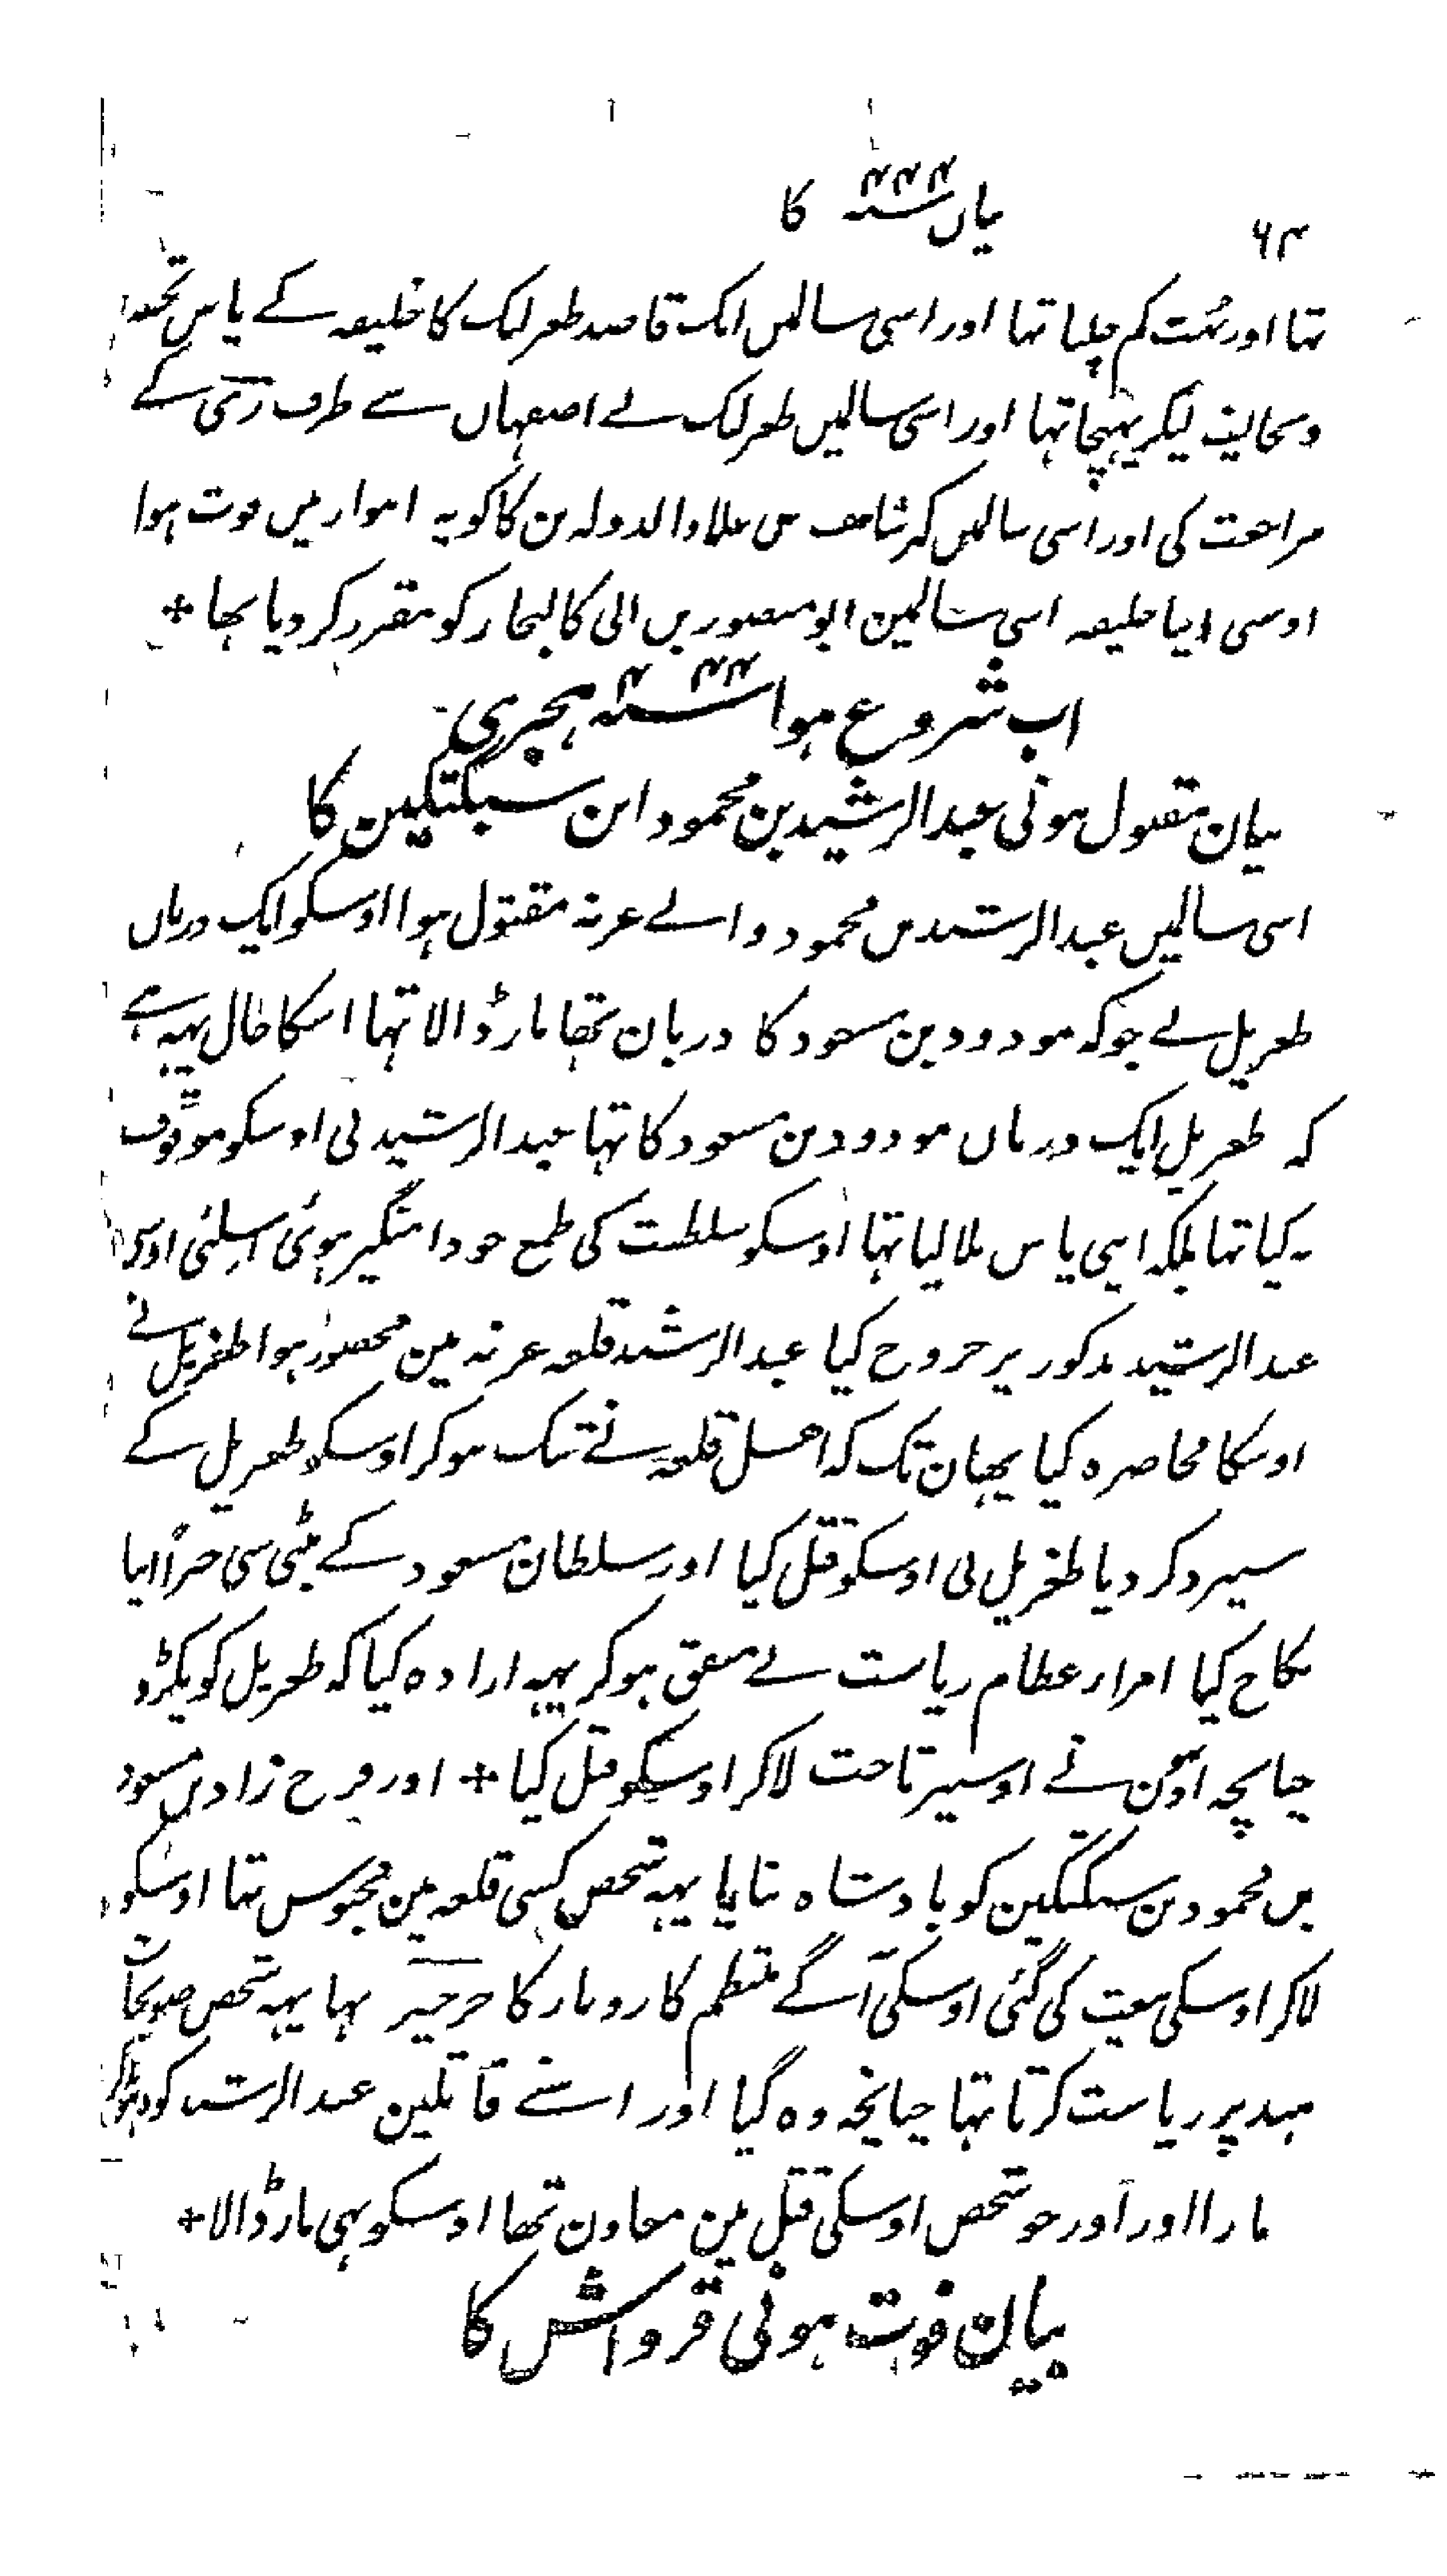 ۶۴ بیان سنہ ۴۴۴ کا
تہا اور بہت کم چلیا تہا اور اسی سالمیں ایک قاصد طغرلبک کا خلیفہ کے پاس تحفہ
وتحایف لیکر پہنچا تہا اور اسی سالمیں طغرلبک نے اصفہاں سے طرف ری کے
مراجعت کی اور اسی سالمیں کرشاسف بن علاوالدولہ بن کاکویہ اہواز میں فوت ہوا
اوسی اپنا خلیفہ اسی سالمین ابو منصور بن ابی کالیجار کو مقرر کر دیا تہا +
اب شروع ہوا سنہ ۴۴۴ ہجری
بیان مقتول ہونی عبدالرشید بن محمود ابن سبکتکین کا
اسی سالمیں عبدالرشید بن محمود والے غزنہ مقتول ہوا اوسکو ایک درباں
طغریل نے جو کہ مودود بن مسعود کا دربان تھا مار ڈالا تہا اسکا حال یہہ ہے
کہ طغریل ایک درباں مودود بن مسعود کا تہا عبدالرشید نی اوسکو موقوف
نہ کیا تہا بلکہ اپنی پاس بلا لیا تہا اوسکو سلطنت کی طمع خود امنگیر ہوئی اسلئی اوسی
عبدالرشید مذکور پر خروج کیا عبدالرشید قلعہ غزنہ مین محصور ہوا طغریل نے
اوسکا محاصرہ کیا یہان تک کہ اہل قلعہ نے تنگ ہوکر اوسکو طغریل کے
سپرد کر دیا طغریل نی اوسکو قتل کیا اور سلطان مسعود کے بیٹی سی جبراً اپنا
نکاح کیا امرار عظام ریاست نے متفق ہوکر یہہ ارادہ کیا کہ طغریل کو پکڑو
چنانچہ اونہوں نے اوسپر تاخت لاکر اوسکو قتل کیا + اور فرخ زاد بن مسعود
بن محمود بن سبکتکین کو بادشاہ بنایا یہہ شخص کسی قلعہ مین محبوس تہا اوسکو
لاکر اوسکی بیعت کی گئی اوسکی آگے منتظم کاروبار کا خرخیز تہا یہہ شخص صوبجات
ہند پر ریاست کرتا تہا چنانچہ وہ گیا اور اسنے قاتلین عبدالرشید کو
مارا اور اور جو شخص اوسکی قتل مین معاون تھا اوسکو بہی مار ڈالا +
بیان فوت ہونی قرواش کا